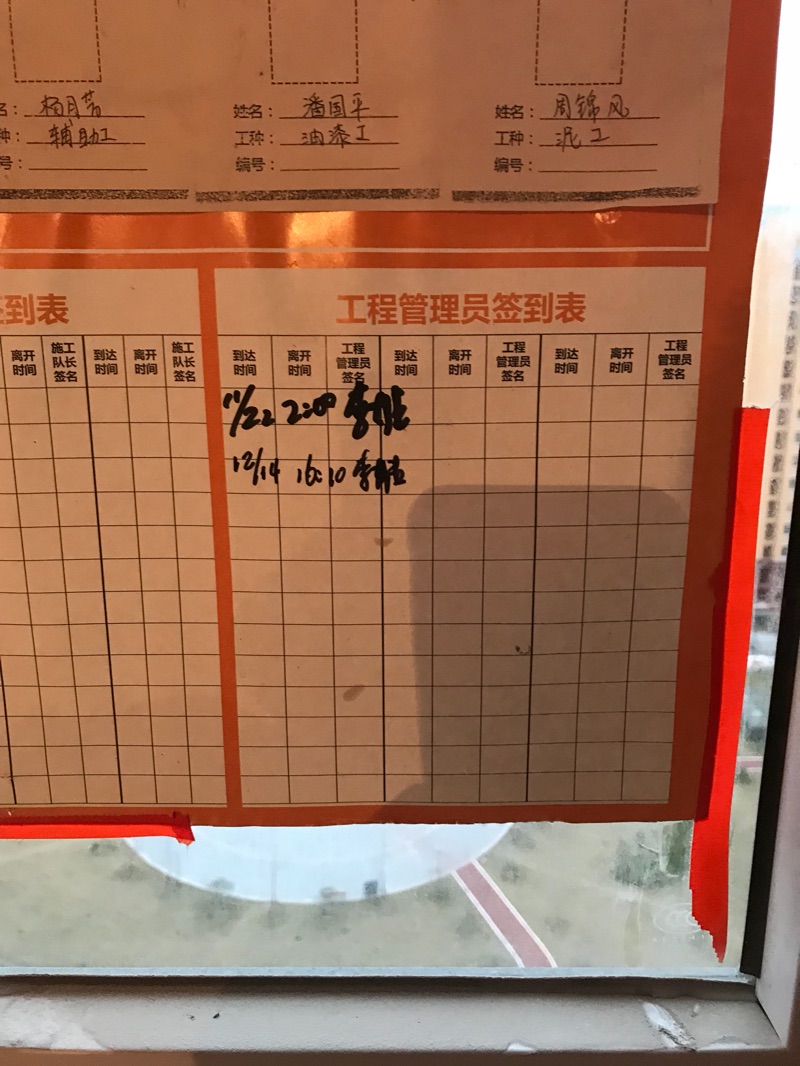 名： 杨月芳 姓名： 潘国平 姓名： 周锦风
种： 辅助工 工种： 油漆工 工种： 泥工
号： 编号： 编号：
到表 工程管理员签到表
离开时间 施工队长签名 到达时间 离开时间 施工队长签名 到达时间 离开时间 工程管理员签名 到达时间 离开时间 工程管理员签名 到达时间 离开时间 工程管理员签名
11/22 2:00 李
12/14 16:10 李